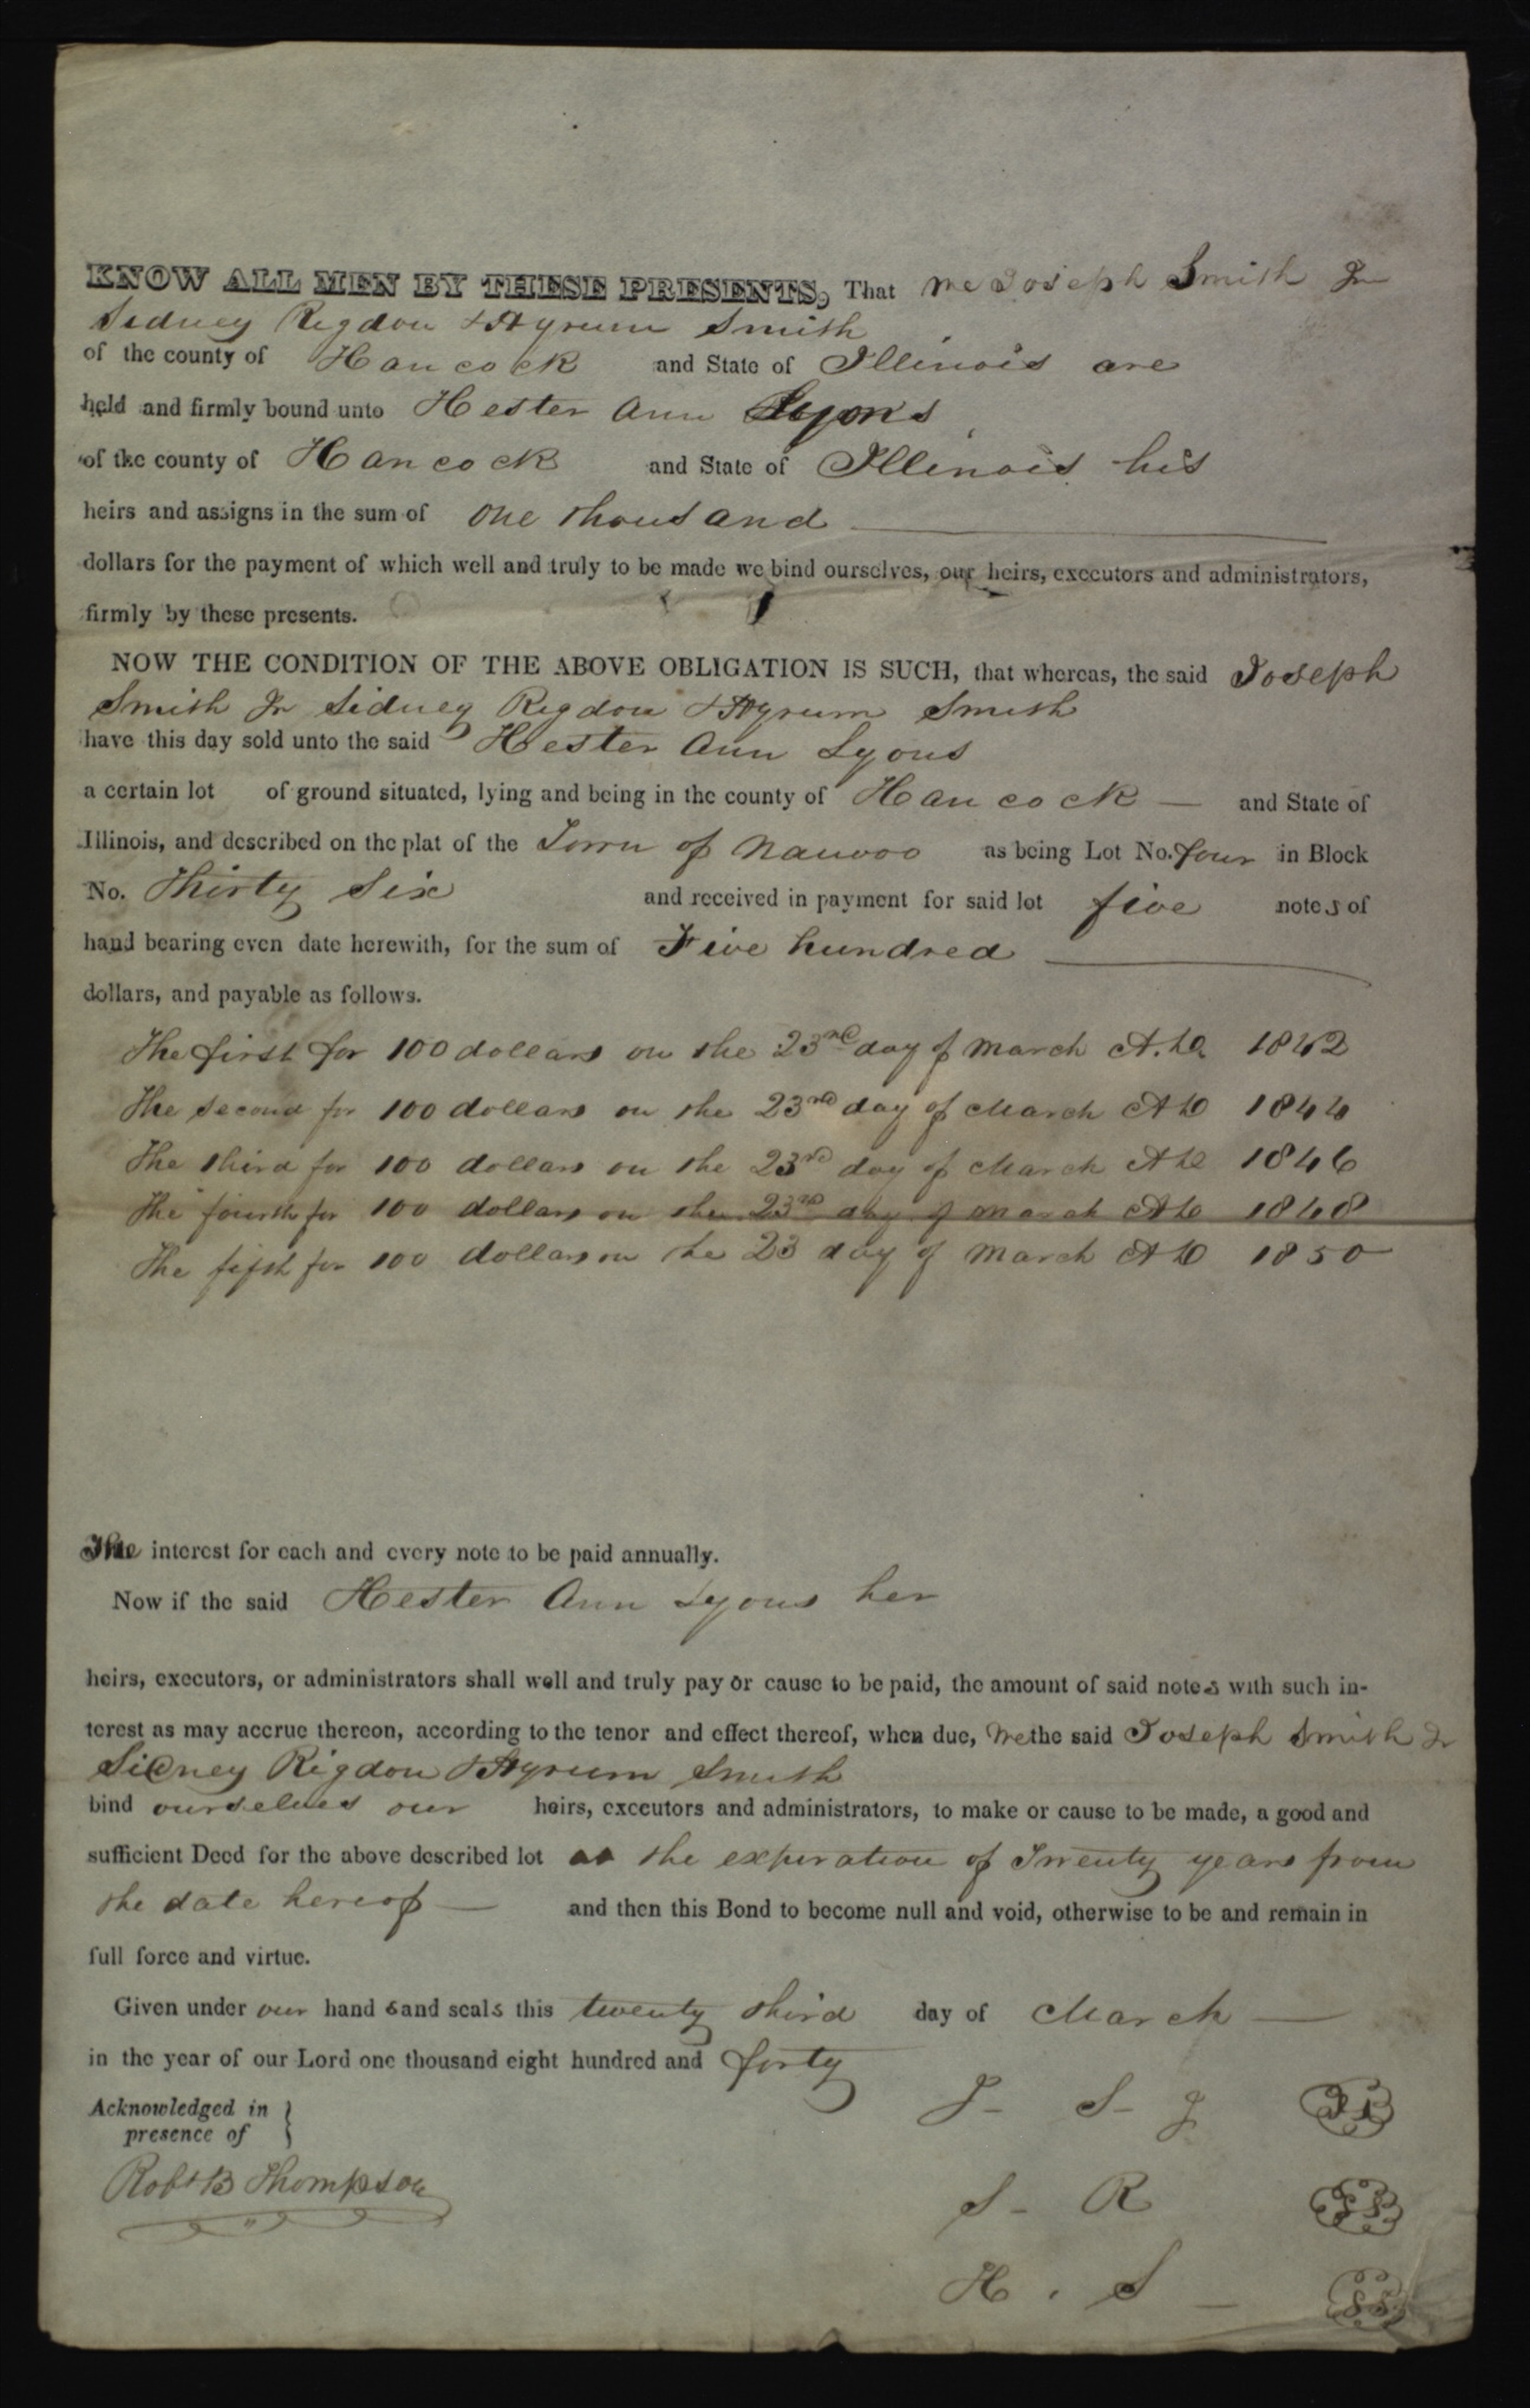 KNOW ALL MEN BY THESE PRESENTS, That we Joseph Smith Jr
Sidney Rigdon & Hyrum Smith
of the county of Hancock and State of Illinois are
held and firmly bound unto Hester Ann Lyons
of the county of Hancock and State of Illinois his
heirs and assigns in the sum of One thousand
dollars for the payment of which well and truly to be made we bind ourselves, our heirs, executors and administrators,
firmly by these presents.
NOW THE CONDITION OF THE ABOVE OBLIGATION IS SUCH, that whereas, the said Joseph
Smith Jr Sidney Rigdon & Hyrum Smith
have this day sold unto the said Hester Ann Lyons
a certain lot of ground situated, lying and being in the county of Hancock — and State of
Illinois, and described on the plat of the Town of Nauvoo as being Lot No. four in Block
No. Thirty Six and received in payment for said lot five notes of
hand bearing even date herewith, for the sum of Five hundred
dollars, and payable as follows.
The first for 100 dollars on the 23rd day of March A.D. 1842
The second for 100 dollars on the 23rd day of March AD 1844
The third for 100 dollars on the 23rd day of March AD 1846
The fourth for 100 dollars on the 23rd day of March AD 1848
The fifth for 100 dollars on the 23 day of March AD 1850
The interest for each and every note to be paid annually.
Now if the said Hester Ann Lyons her
heirs, executors, or administrators shall well and truly pay or cause to be paid, the amount of said notes with such in-
terest as may accrue thereon, according to the tenor and effect thereof, when due, We the said Joseph Smith Jr
Sidney Rigdon & Hyrum Smith
bind ourselves our heirs, executors and administrators, to make or cause to be made, a good and
sufficient Deed for the above described lot at the expiration of Twenty years from
the date hereof — and then this Bond to become null and void, otherwise to be and remain in
full force and virtue.
Given under our hands and seals this twenty third day of March —
in the year of our Lord one thousand eight hundred and forty
Acknowledged in
presence of
J- S- J
Robt B Thompson
S- R
H. S